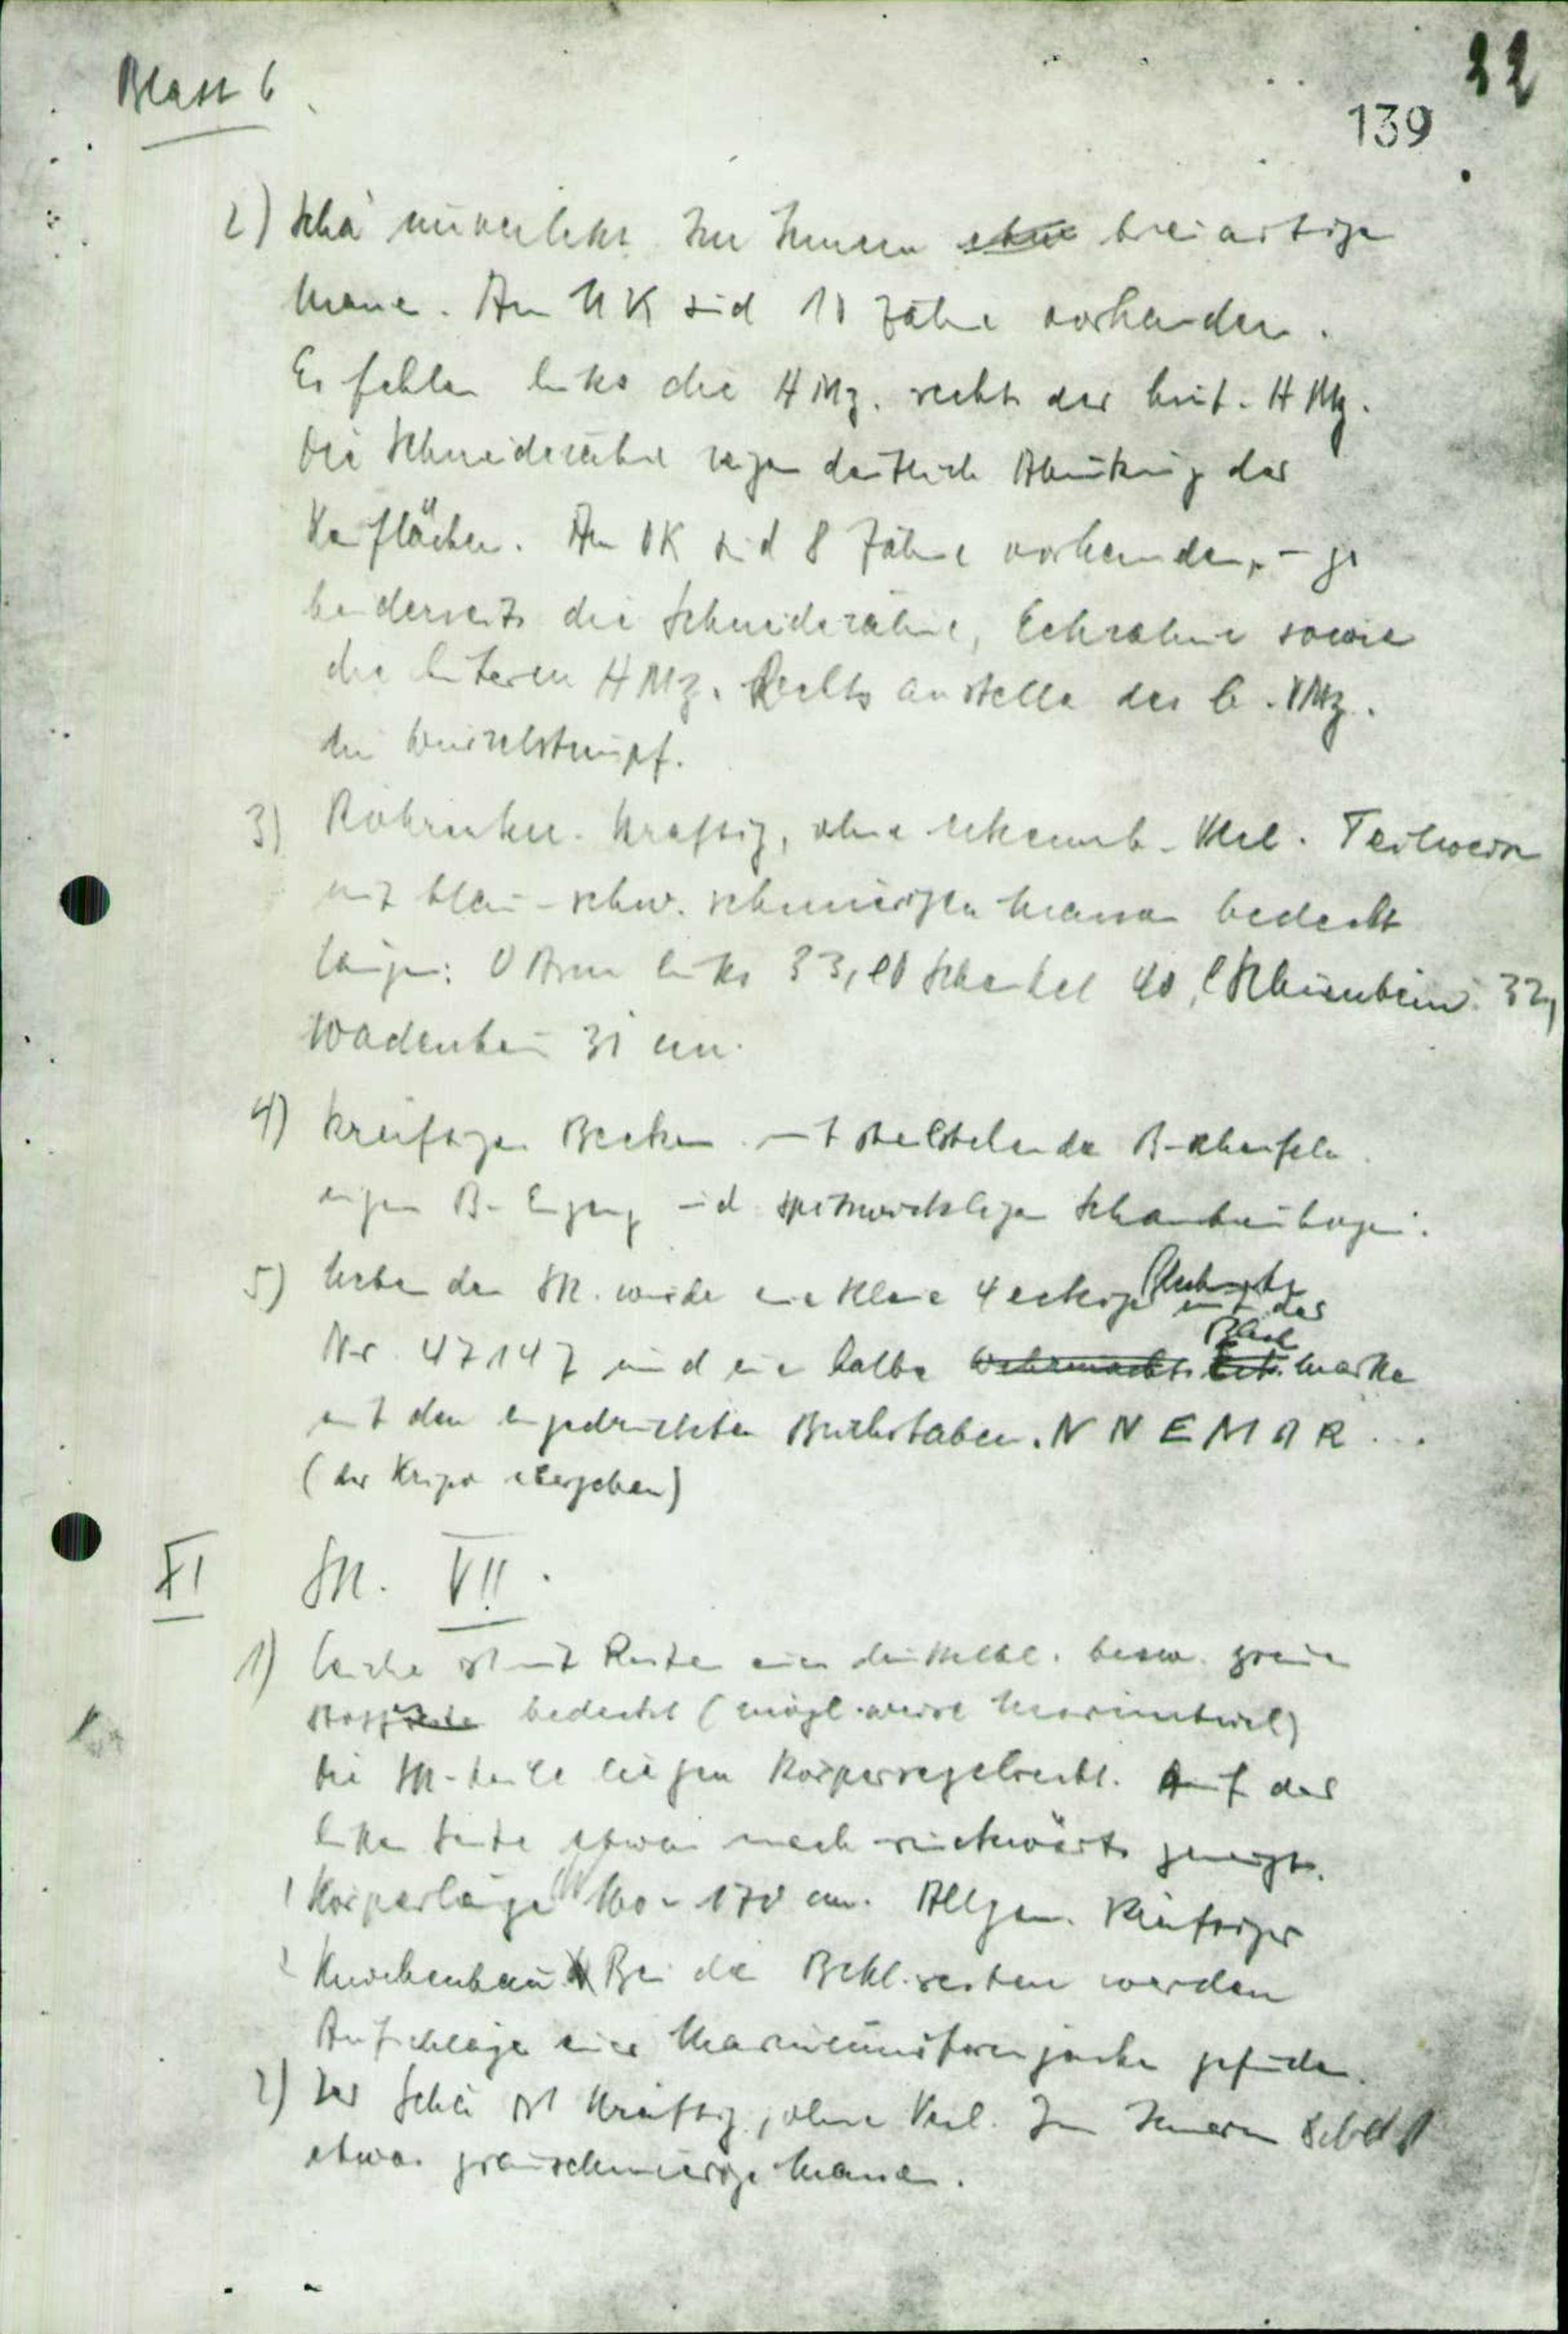 Blatt 6
22
139
2) Schä unverletzt. Im Innern etwas breiartige
Masse. Am UK sind 10 Zähne vorhanden.
Es fehlen links die HMz. rechts der hint. HMz.
Die Schneidezähne zeigen deutlich Abnützung der
Kauflächen. Am OK sind 8 Zähne vorhanden, - je
beiderseits die Schneidezähne, Eckzähne sowie
die hinteren HMz. Rechts anstelle des VMz.
ein Wurzelstumpf.
3) Röhrenkn. kräftig, ohne erkennb. Verl. Teilweise
mit blau-schw. schmierigen Massen bedeckt
Länge: O Arm links 33, l O Schenkel 40, l Schienbein 32,
Wadenbein 31 cm.
4) Kräftiges Becken mit steilstehenden B-schaufeln
engem B-Eingang und spitzwinkligem Schambeinbogen.
5) Neben dem Sk. wurde eine kleine 4 eckige mit der
Blech
Nr. 47147 und eine halbe Wehrmachts Erk. Marke
mit den eingedrückten Buchstaben. N N E M A R ...
(der Kripo übergeben)
XI Sk. VII.
1) Leiche ist mit Resten eines dunkelbl. bezw. grauen
Stoffes bedeckt (möglw.weise Marinetuch)
Die Sk-teile liegen körpergerecht. Auf der
linken Seite etwas nach rückwärts geneigt.
1 Körperlänge 160 - 170 cm. Allgem. kräftiger
2 Knochenbau Bei den Bekl.resten werden
Aufschläge einer Marineuniformjacke gefunden.
2) Der Schä ist kräftig, ohne Verl. Im Innern
etwas grauschmierige Masse.